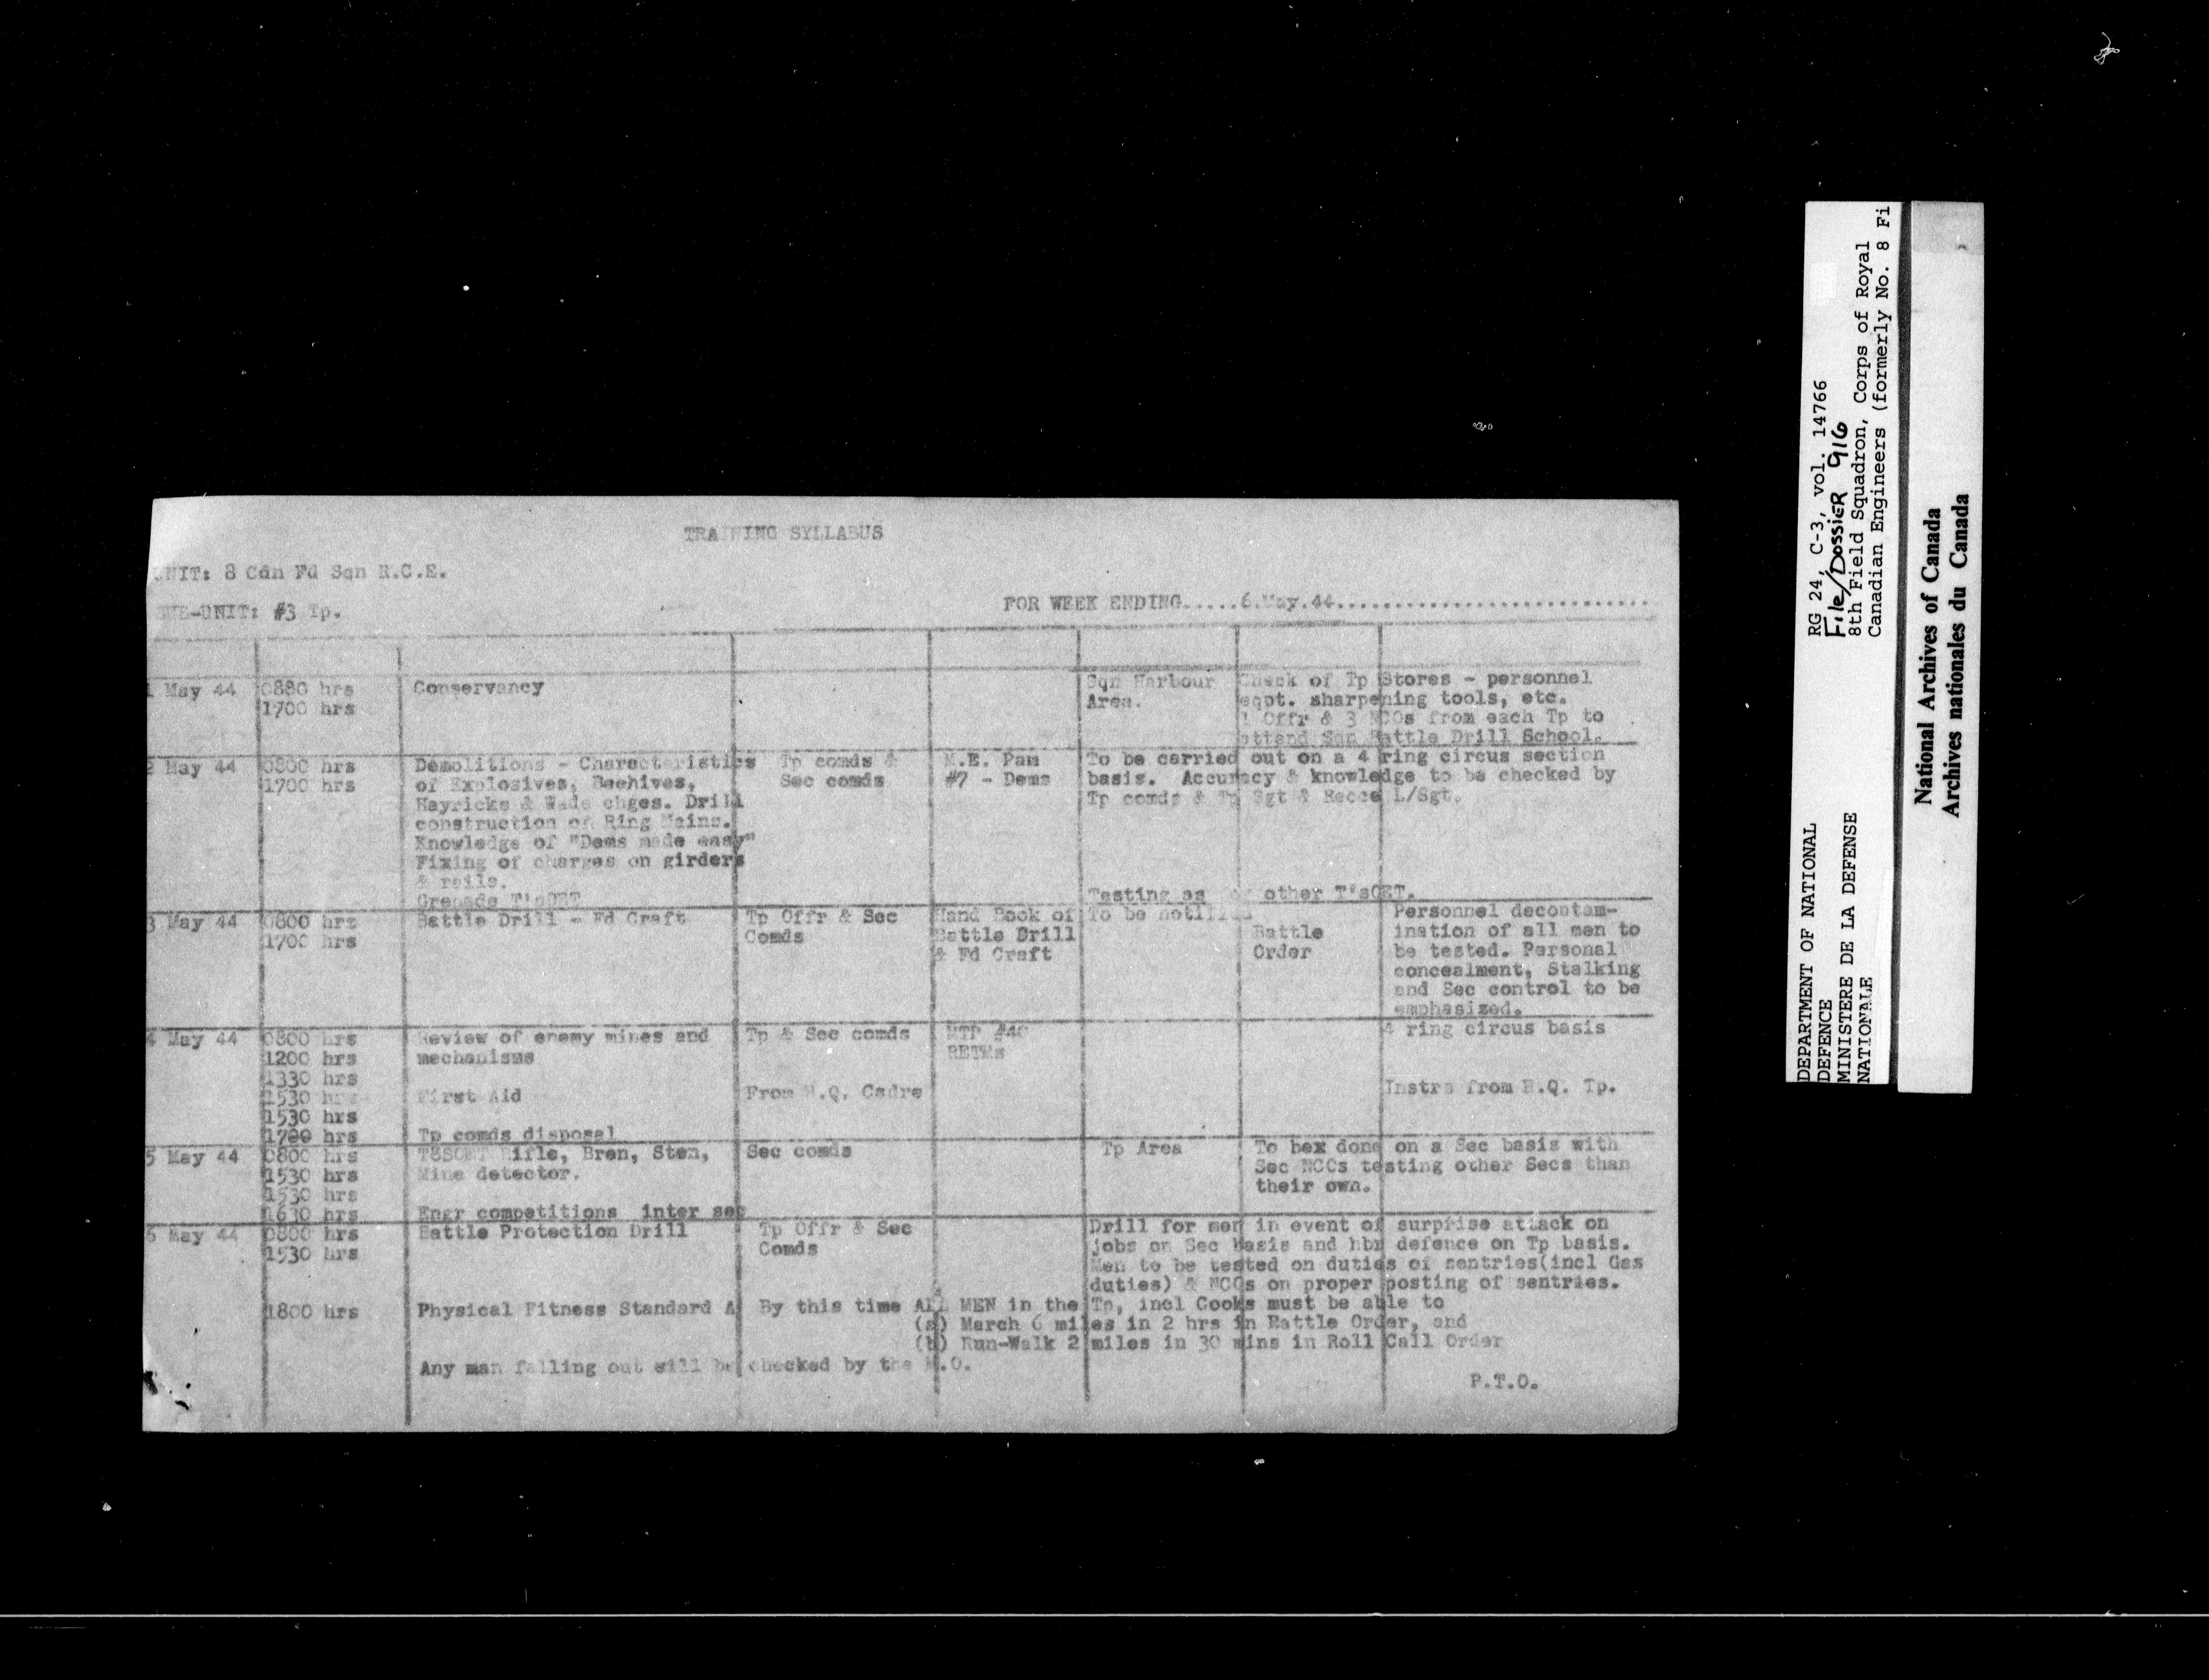 TRAINING SYLLABUS
UNIT: 8 Cdn Fd Sqn R.C.E.
SUB-UNIT: #3 Tp.
FOR WEEK ENDING.....6.May.44..............................
1 May 44 0880 hrs Conservancy Sqn Harbour Check of Tp Stores - personnel
1700 hrs Area. eqpt. sharpening tools, etc.
1 Offr & 3 NCOs from each Tp to
attend Sqn Battle Drill School.
2 May 44 0800 hrs Demolitions - Characteristics Tp comds & M.E. Pam To be carried out on a 4 ring circus section
1700 hrs of Explosives, Beehives, Sec comds #7 - Dems basis. Accuracy & knowledge to be checked by
Hayricks & Wade chges. Drill Tp comds & Tp Sgt & Recce L/Sgt.
construction of Ring Mains.
Knowledge of "Dems made easy"
Fixing of charges on girders
& rails.
Grenade T'sOET Testing as other T'sOET.
3 May 44 0800 hrs Battle Drill - Fd Craft Tp Offr & Sec Hand Book of To be notified Personnel decontam-
1700 hrs Comds Battle Drill Battle ination of all men to
& Fd Craft Order be tested. Personal
concealment, Stalking
and Sec control to be
emphasized.
4 May 44 0800 hrs Review of enemy mines and Tp & Sec comds MTP #40 4 ring circus basis
1200 hrs mechanisms RETMs
1330 hrs
1530 hrs First Aid From H.Q. Cadre Instrs from H.Q. Tp.
1530 hrs
1700 hrs Tp comds disposal
5 May 44 0800 hrs TsSOET Rifle, Bren, Sten, Sec comds Tp Area To bex done on a Sec basis with
1530 hrs Mine detector. Sec NCOs testing other Secs than
1530 hrs their own.
1630 hrs Engr competitions inter sec
6 May 44 0800 hrs Battle Protection Drill Tp Offr & Sec Drill for men in event of surprise attack on
1530 hrs Comds jobs on Sec basis and hbr defence on Tp basis.
Men to be tested on duties of sentries(incl Gas
duties) & NCOs on proper posting of sentries.
1800 hrs Physical Fitness Standard A By this time ALL MEN in the Tp, incl Cooks must be able to
(a) March 6 miles in 2 hrs in Battle Order, and
(b) Run-Walk 2 miles in 30 mins in Roll Call Order
Any man falling out will be checked by the M.O.
P.T.O.
RG 24, C-3, vol. 14766
File/Dossier 916
8th Field Squadron, Corps of Royal
Canadian Engineers (formerly No. 8 Fi
DEPARTMENT OF NATIONAL
DEFENCE
MINISTERE DE LA DEFENSE
NATIONALE
National Archives of Canada
Archives nationales du Canada